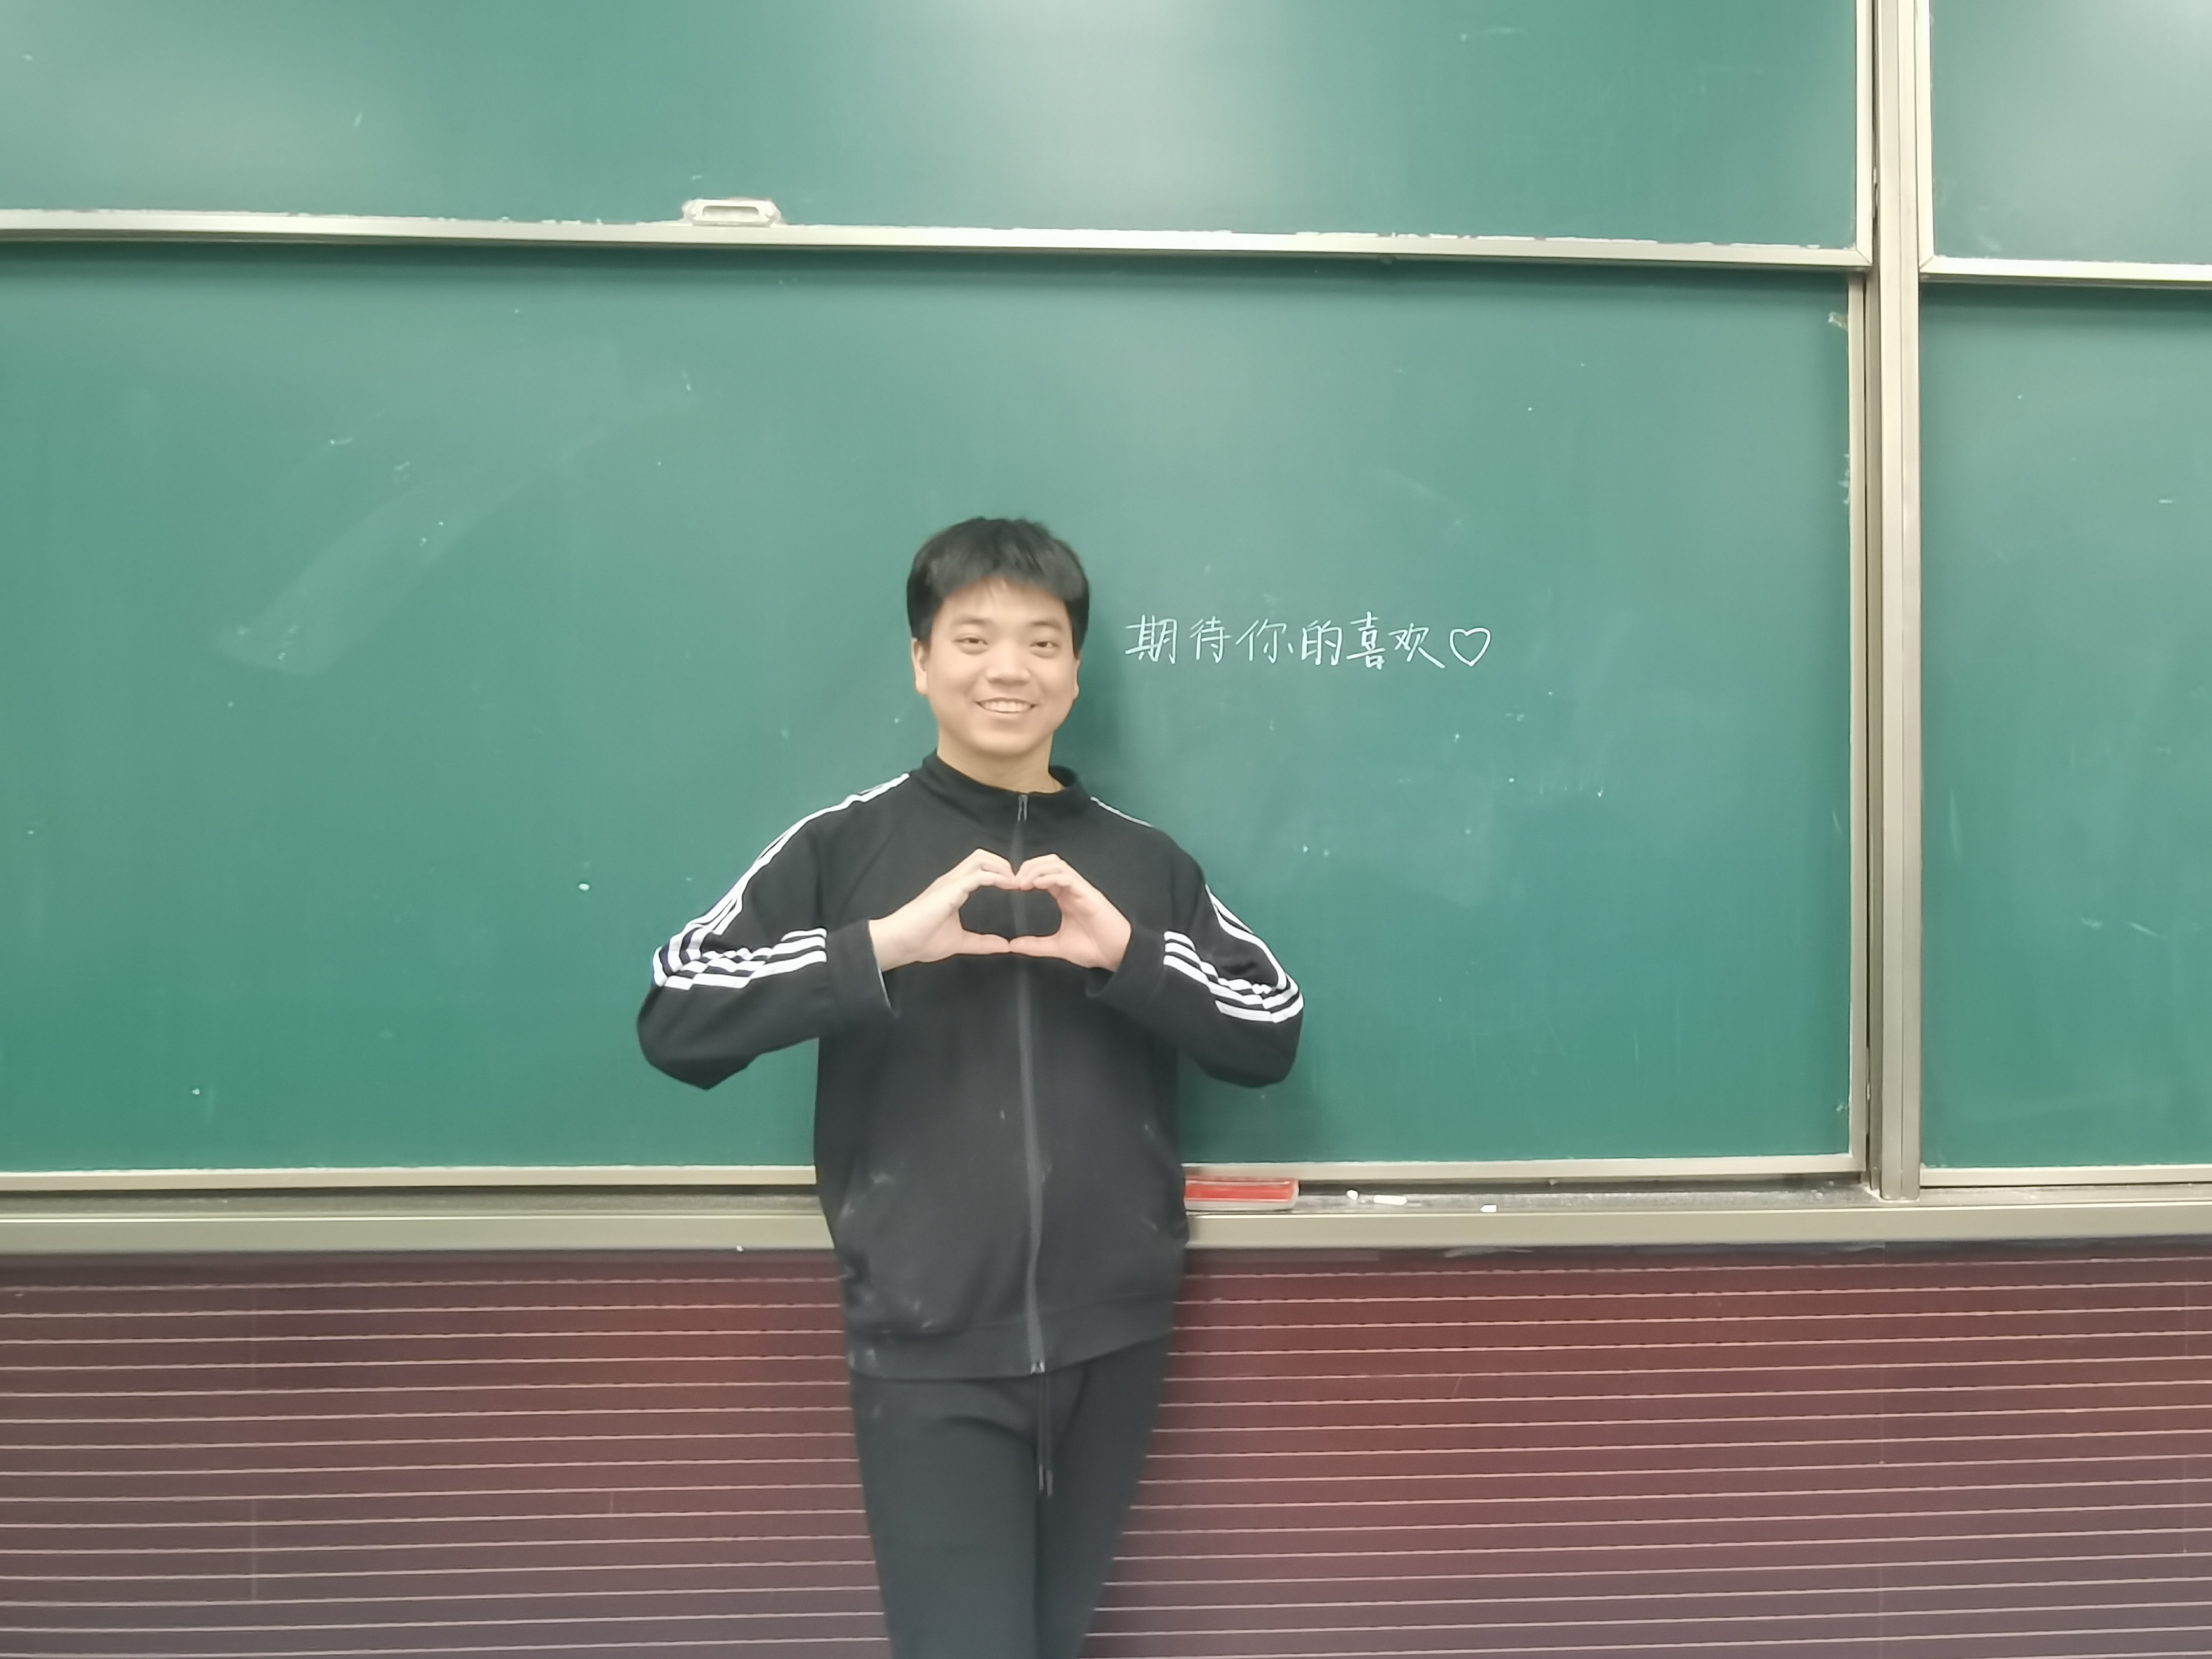 期待你的喜欢♡